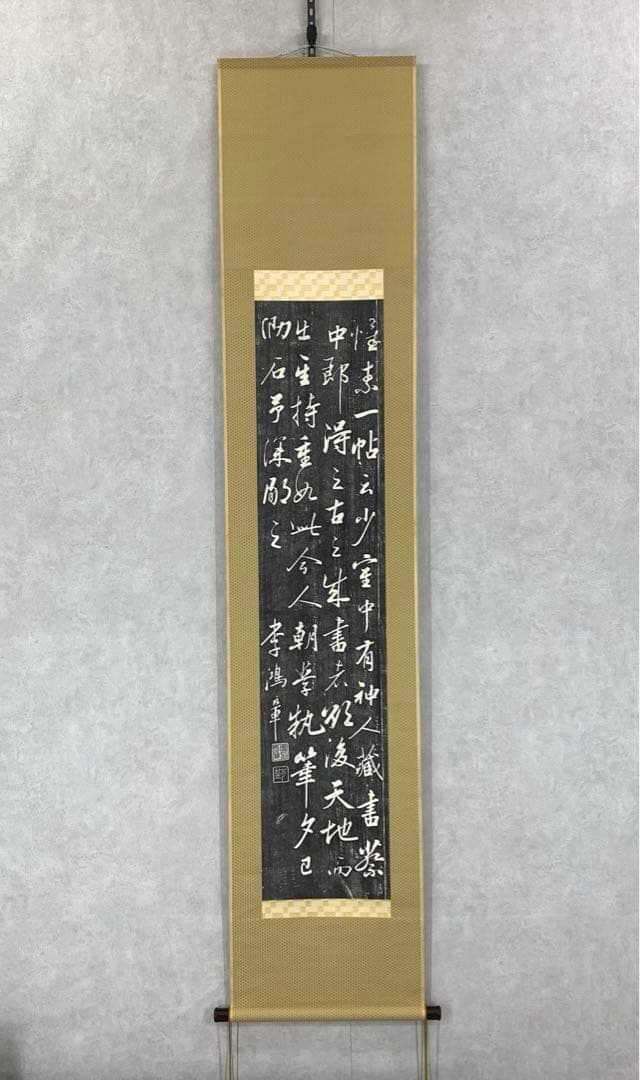 懷素一帖云少室中有神人藏書蔡
中郎得之古之成書者欲後天地而
出其持重如此今人朝學執筆夕已
勒石予深鄙之 李鴻章